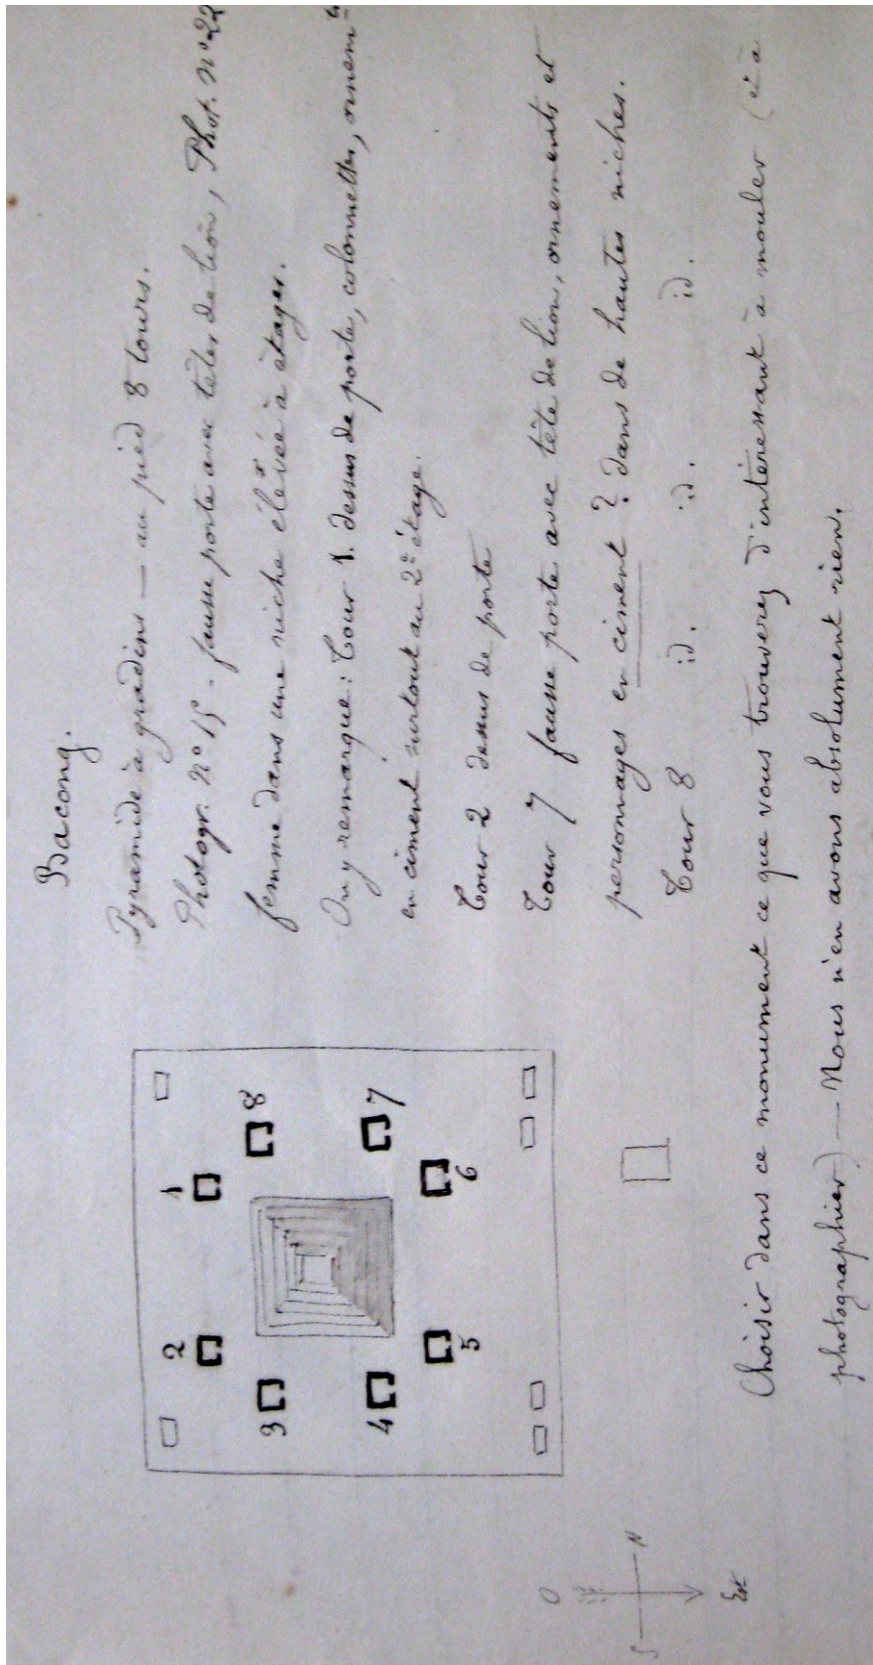 Bacong.
Pyramide à gradins — au pied 8 tours.
Photogr. n° 15 - fausse porte avec têtes de lion, Phot. n° 22
femme dans une niche élevée à étages.
On y remarque : Tour 1. dessus de porte, colonnettes, ornem^ts
en ciment surtout au 2e étage.
Tour 2 dessus de porte
Tour 7 fausse porte avec tête de lion, ornements et
personnages en ciment ? dans de hautes niches.
Tour 8 id. id. id.
1
2
3
4
5
6
7
8
O
S N
Est
Choisir dans ce monument ce que vous trouverez d'intéressant à mouler (et à
photographier) — Nous n'en avons absolument rien.